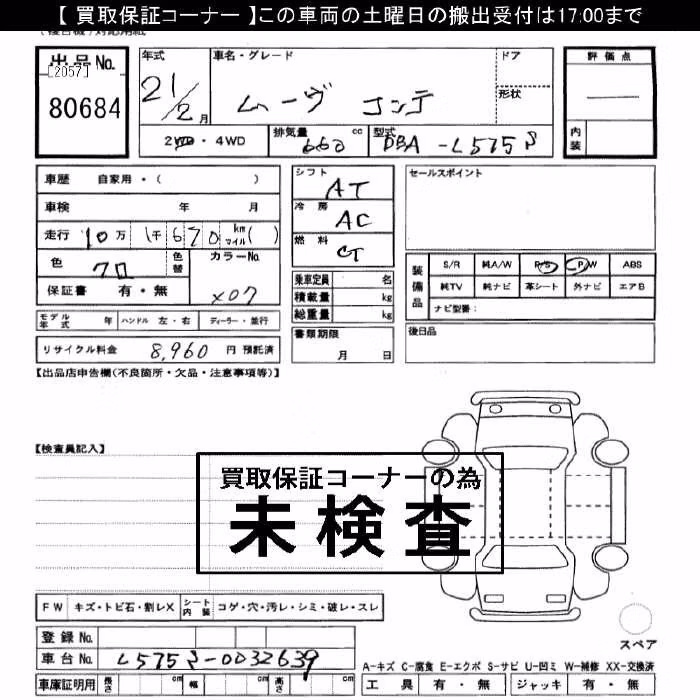 【 買取保証コーナー 】この車両の土曜日の搬出受付は17:00まで
出品No.
[2057]
80684
年式
21/2月
車名・グレード
ムーヴ コンテ
ドア
形状
評価点
内装
2WD・4WD
排気量 660 cc
型式 DBA-L575S
車歴 自家用・( )
車検 年 月
走行 10万 1千670 km マイル( )
色 クロ
色替
カラーNo.
X07
保証書 有・無
シフト AT
冷房 AC
燃料 G
乗車定員 名
積載量 kg
総重量 kg
セールスポイント
装備品
S/R 純A/W P/S P/W ABS
純TV 純ナビ 革シート 外ナビ エアB
ナビ型番:
モデル年式 年 ハンドル 左・右 ディーラー・並行
リサイクル料金 8,960 円 預託済
書類期限
月 日
後日品
【出品店申告欄(不良箇所・欠品・注意事項等)】
【検査員記入】
買取保証コーナーの為
未検査
FW キズ・トビ石・割レX シート内装 コゲ・穴・汚レ・シミ・破レ・スレ
登録No.
車台No. L575S-0032639
車庫証明用 長さ cm 幅 cm 高さ cm
スペア
A-キズ C-腐食 E-エクボ S-サビ U-凹ミ W-補修 XX-交換済
工具 有・無 ジャッキ 有・無